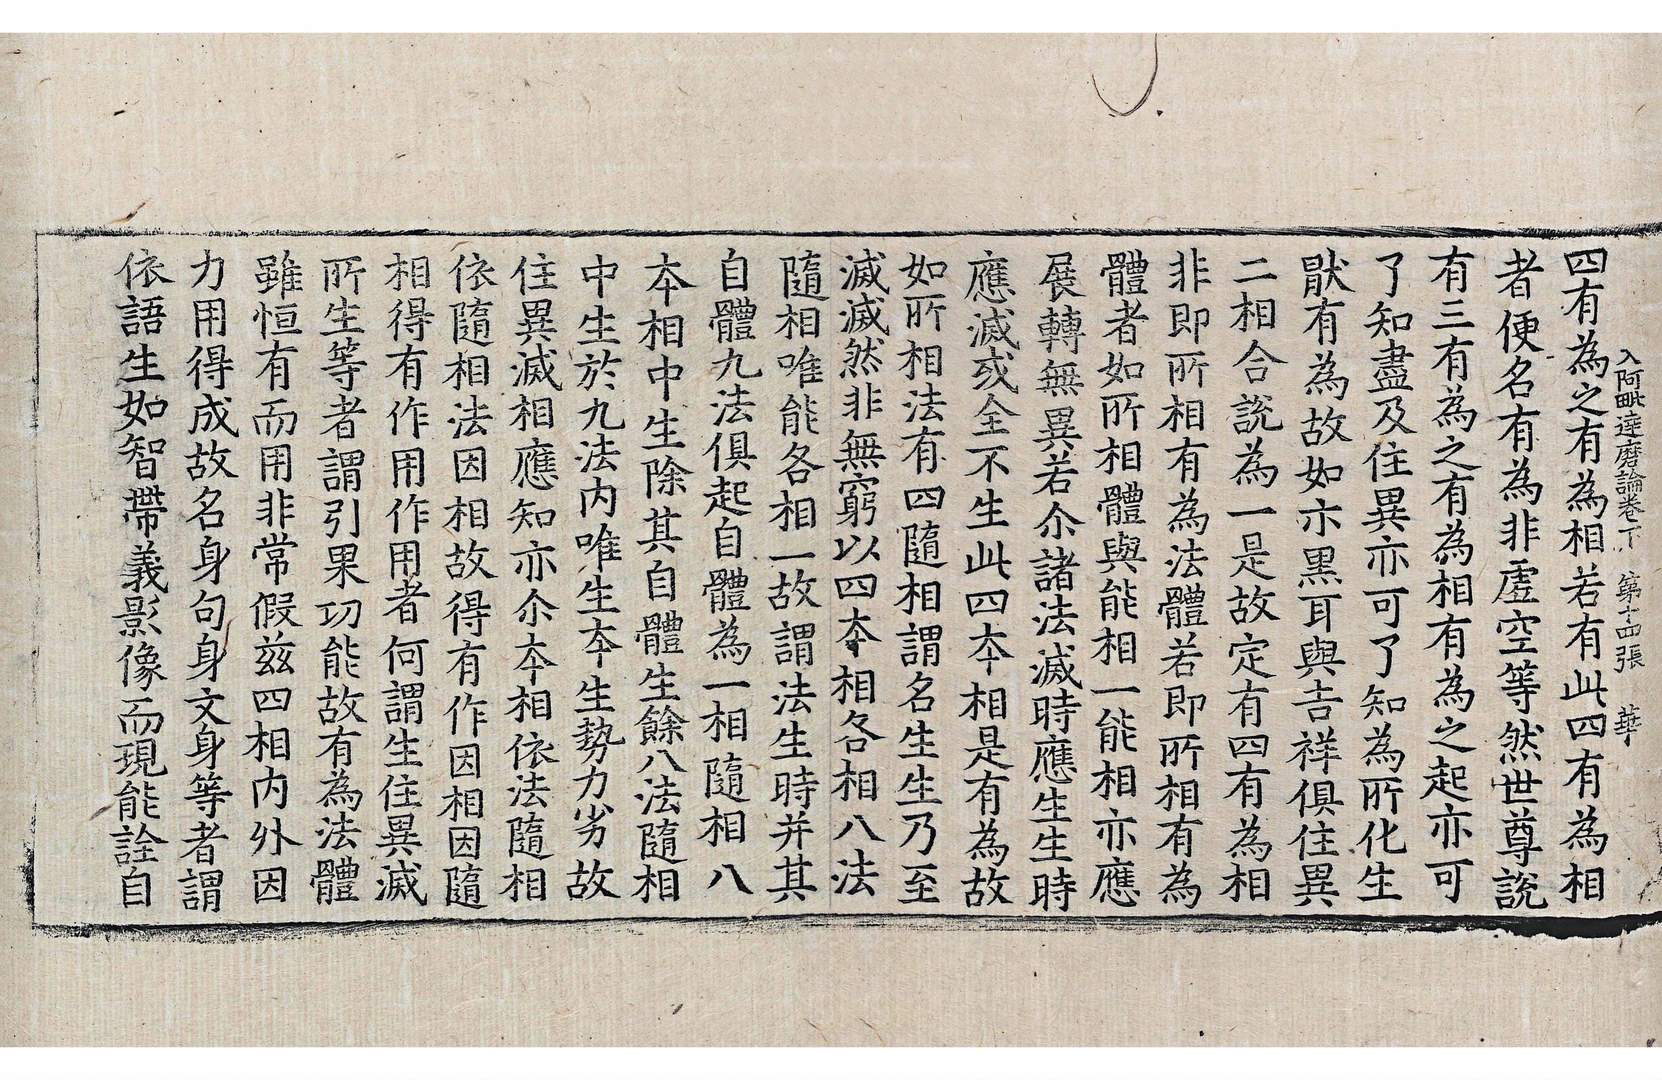 入阿毗達磨論卷下 第十四張 華
四有為之有為相若有此四有為相
者便名有為非虛空等然世尊說
有三有為之有為相有為之起亦可
了知盡及住異亦可了知為所化生
猒有為故如示黑耳與吉祥俱住異
二相合說為一是故定有四有為相
非即所相有為法體若即所相有為
體者如所相體與能相一能相亦應
展轉無異若尒諸法滅時應生生時
應滅或全不生此四本相是有為故
如所相法有四隨相謂名生生乃至
滅滅然非無窮以四本相各相八法
隨相唯能各相一故謂法生時并其
自體九法俱起自體為一相隨相八
本相中生除其自體生餘八法隨相
中生於九法內唯生本生勢力劣故
住異滅相應知亦尒本相依法隨相
依隨相法因相故得有作因相因隨
相得有作用作用者何謂生住異滅
所生等者謂引果功能故有為法體
雖恒有而用非常假兹四相內外因
力用得成故名身句身文身等者謂
依語生如智帶義影像而現能詮自